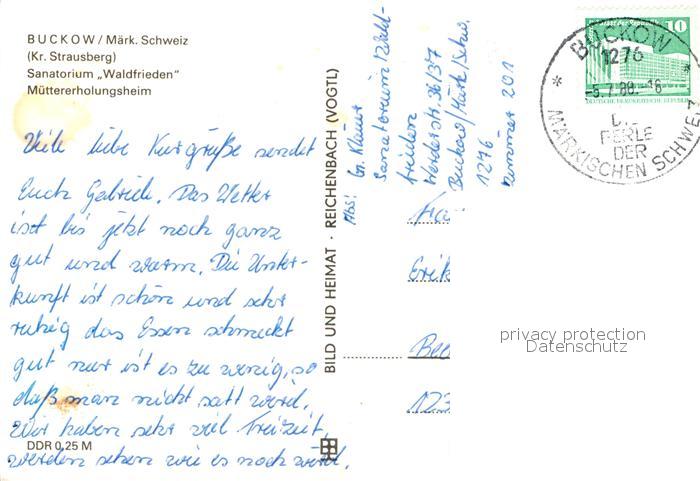 BUCKOW / Märk. Schweiz
(Kr. Strausberg)
Sanatorium „Waldfrieden"
Müttererholungsheim
Viele liebe Kurgrüße sendet
Euch Gabriele. Das Wetter
ist bis jetzt noch ganz
gut und warm. Die Unter-
kunft ist schön und sehr
ruhig das Essen schmeckt
gut nur ist es zu wenig, so
daß man nicht satt wird.
Wir haben sehr viel Freizeit,
werden sehen wie es noch wird.
DDR 0,25 M
BILD UND HEIMAT · REICHENBACH (VOGTL)
Abs.: G. Klaus
Sanatorium Wald-
frieden
Werderstr. 36/37
Buckow/Märk/Schw.
1276
Zimmer 201
Erik
123
10
DEUTSCHE DEMOKRATISCHE REPUBLIK
BUCKOW
1276
-5.7.88.-16
DIE
PERLE
DER
MÄRKISCHEN SCHWEIZ
privacy protection
Datenschutz